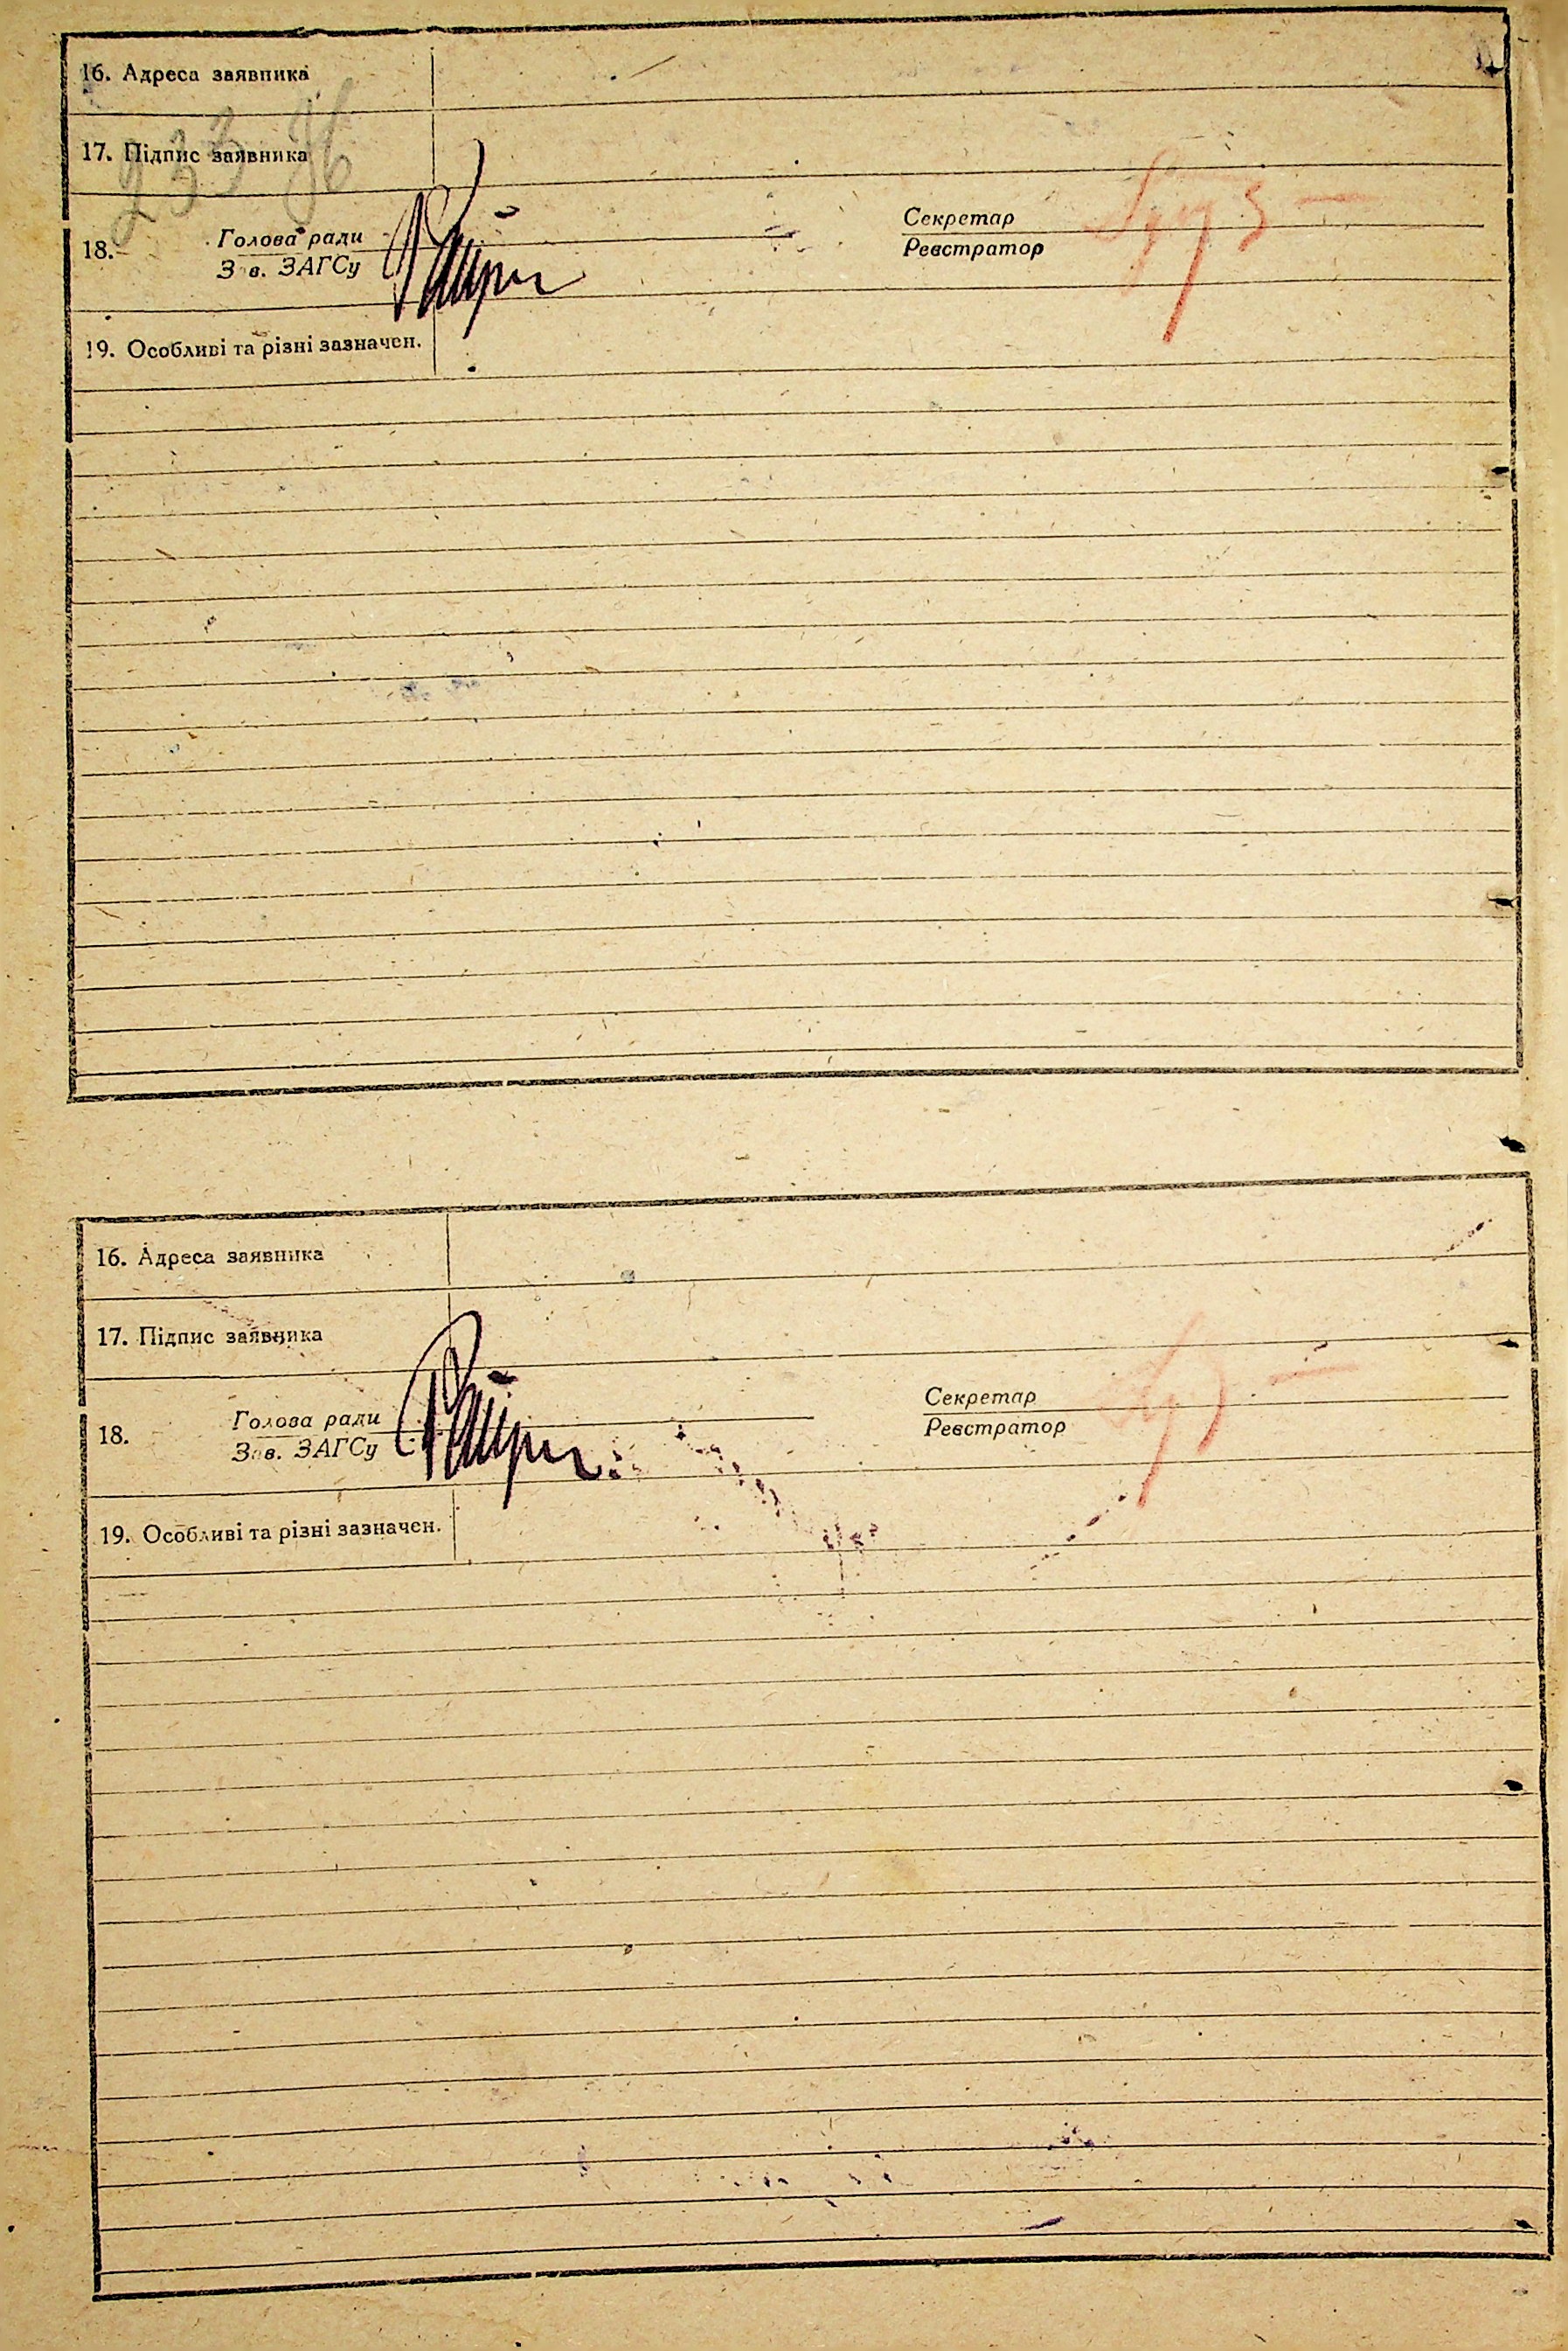 16. Адреса заявника
17. Підпис заявника
233
18. Голова ради
Зав. ЗАГСу
Секретар
Реєстратор
19. Особливі та різні зазначен.
16. Адреса заявника
17. Підпис заявника
18. Голова ради
Зав. ЗАГСу
Секретар
Реєстратор
19. Особливі та різні зазначен.